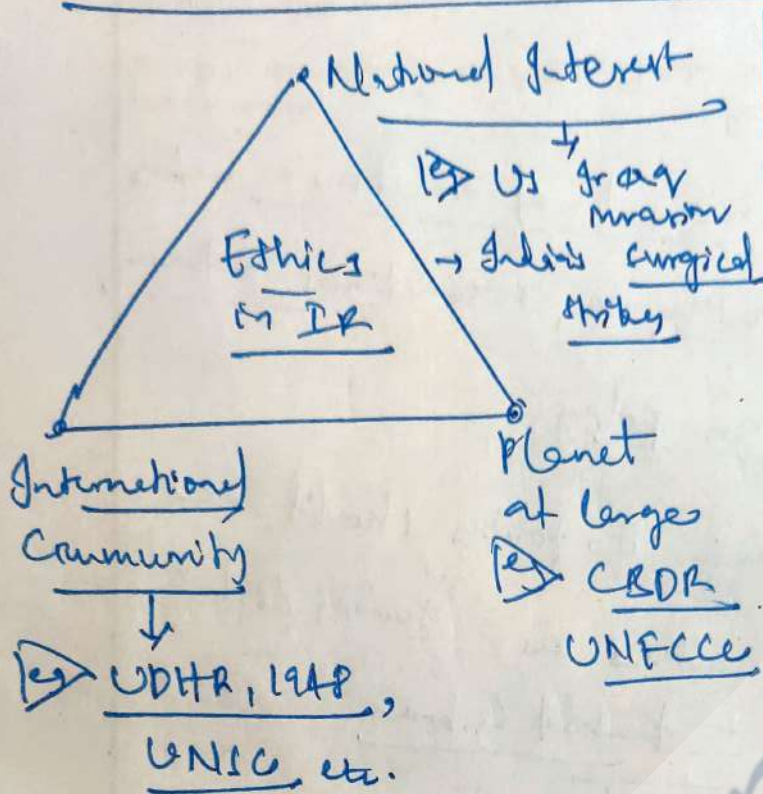 National Interest
eg US Iraq
invasion
→ India's surgical
strikes
Ethics
in IR
International
Community
eg UDHR, 1948,
UNSC etc.
Planet
at large
eg CBDR
UNFCCC